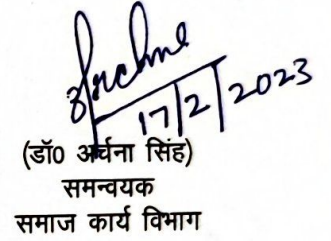 Archna
17/2/2023
(डॉ0 अर्चना सिंह)
समन्वयक
समाज कार्य विभाग